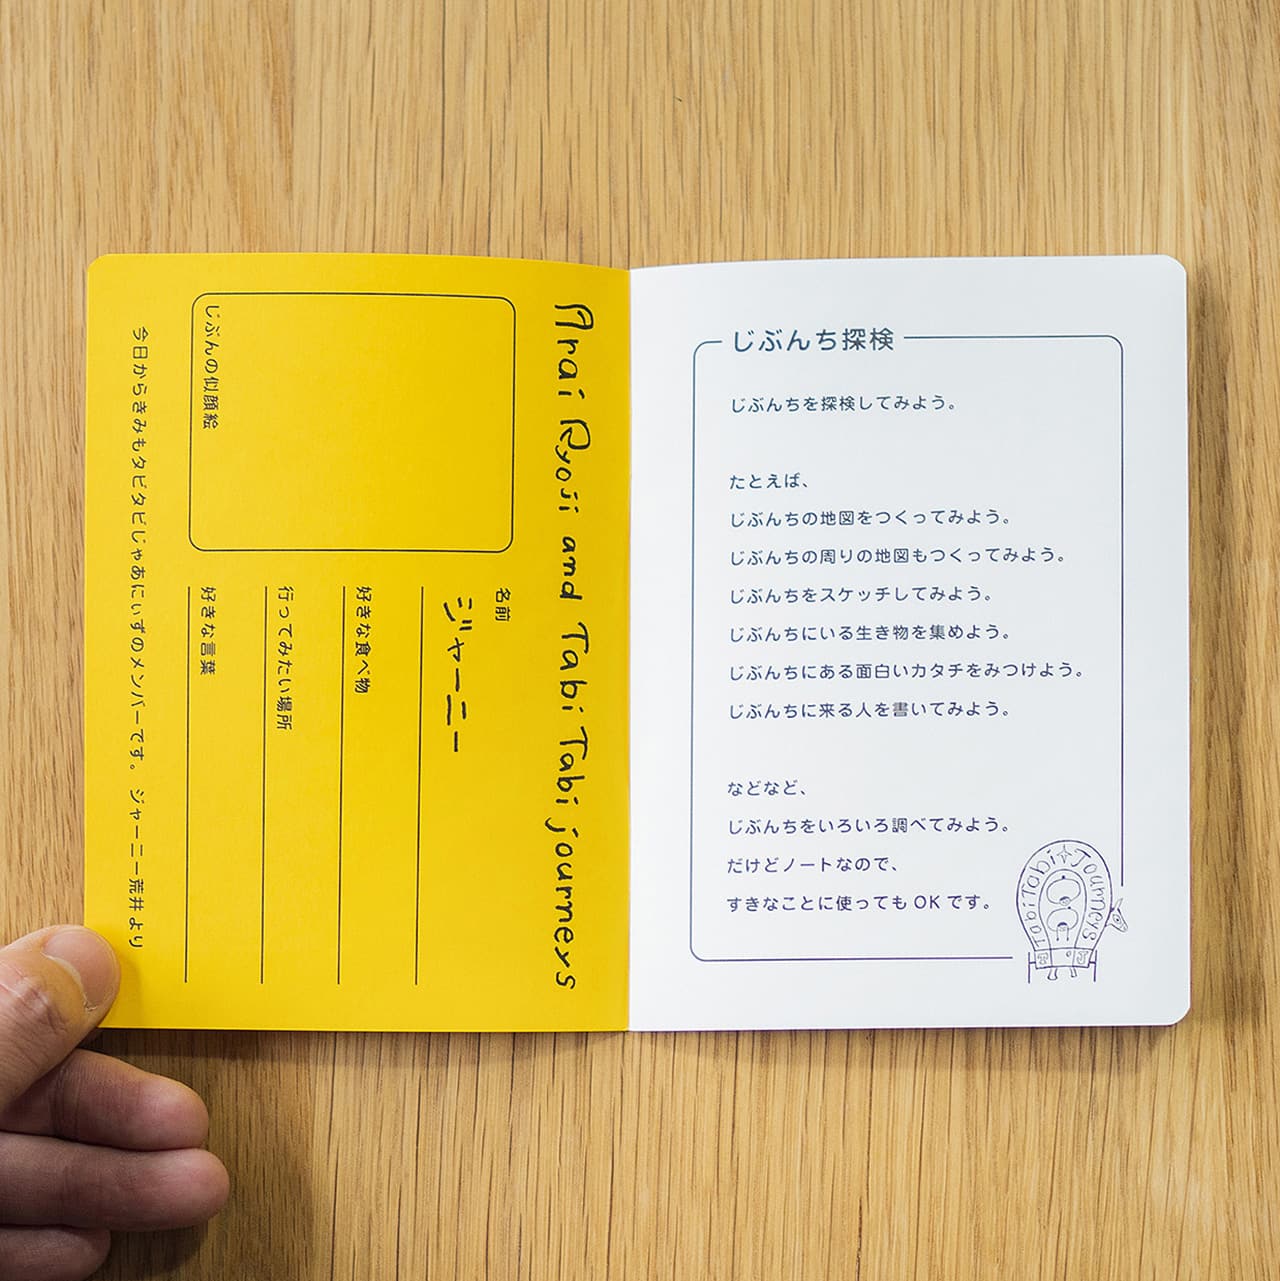 Arai Ryoji and Tabi Tabi journeys
じぶんの似顔絵
名前
ジャーニー
好きな食べ物
行ってみたい場所
好きな言葉
今日からきみもタビタビじゃあにぃずのメンバーです。 ジャーニー荒井より
じぶんち探検
じぶんちを探検してみよう。
たとえば、
じぶんちの地図をつくってみよう。
じぶんちの周りの地図もつくってみよう。
じぶんちをスケッチしてみよう。
じぶんちにいる生き物を集めよう。
じぶんちにある面白いカタチをみつけよう。
じぶんちに来る人を書いてみよう。
などなど、
じぶんちをいろいろ調べてみよう。
だけどノートなので、
すきなことに使ってもOKです。
TabiTabi Journeys
T J